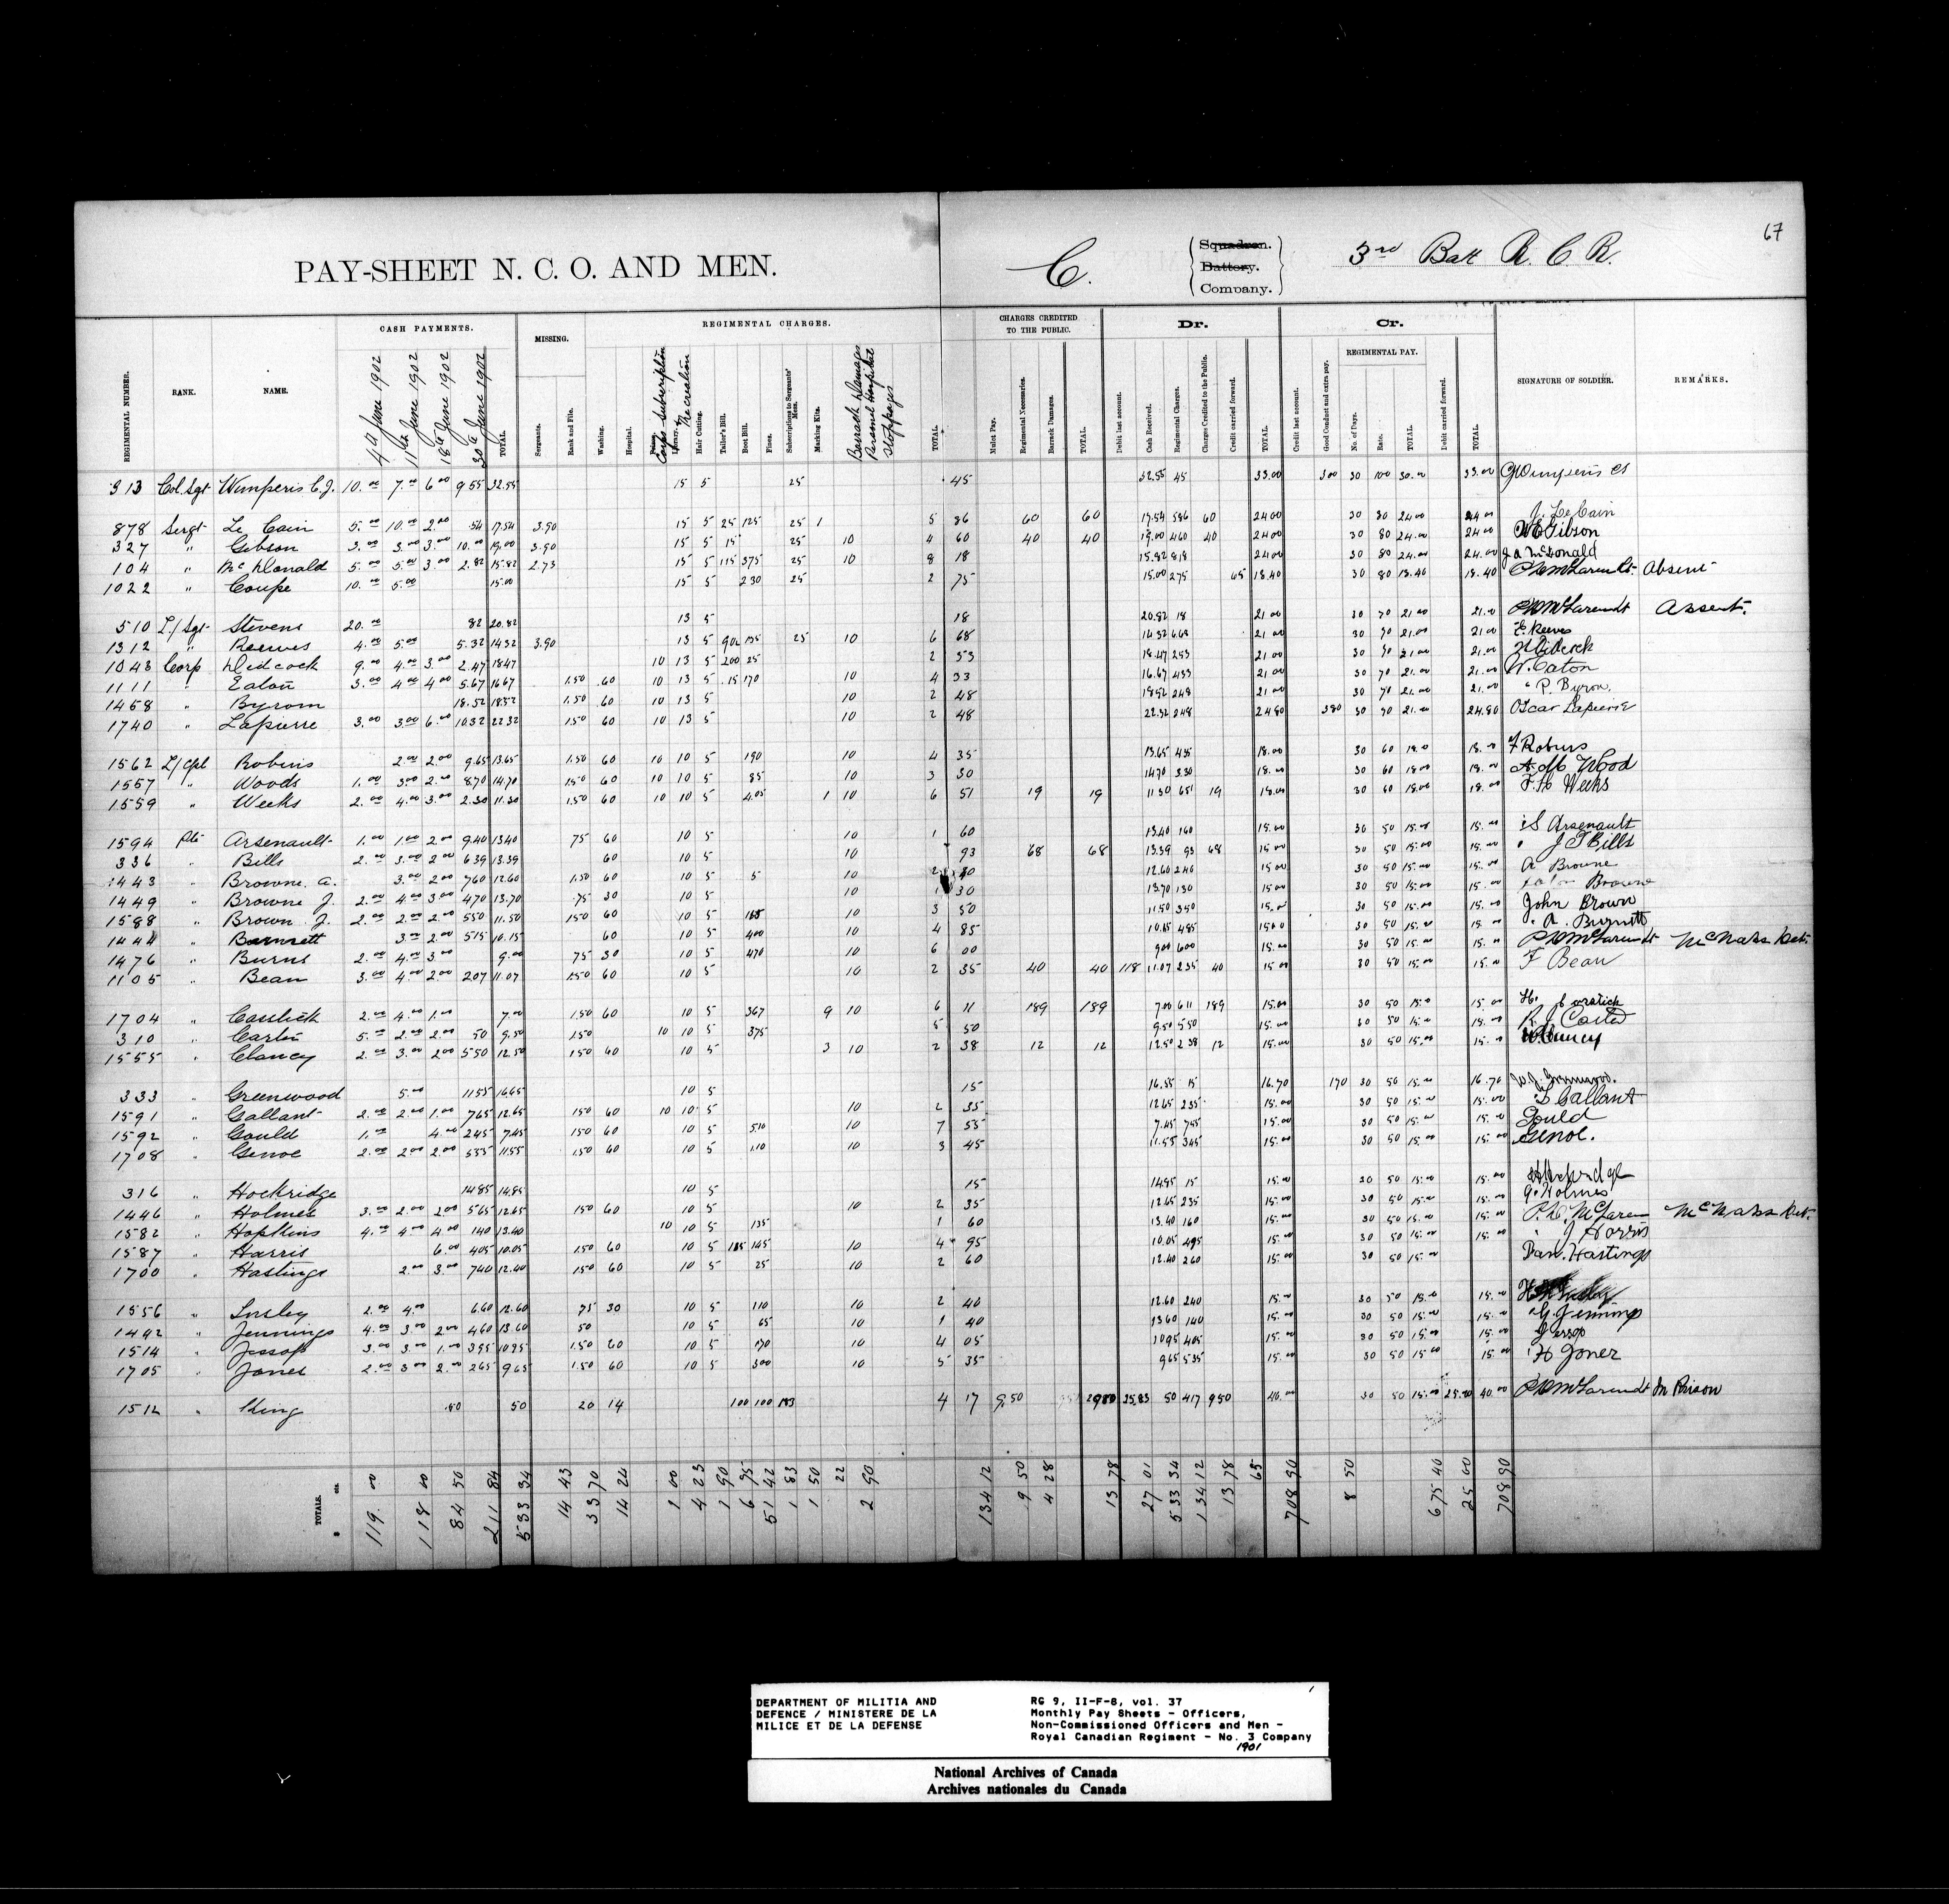 67
PAY-SHEET N. C. O. AND MEN.
C.
Squadron.
Battery.
Company.
3rd Batt R. C. R.
CASH PAYMENTS.
MISSING.
REGIMENTAL CHARGES.
CHARGES CREDITED TO THE PUBLIC.
Dr.
Cr.
REGIMENTAL PAY.
REGIMENTAL NUMBER.
RANK.
NAME.
4th June 1902
11th June 1902
18th June 1902
30th June 1902
TOTAL.
Sergeants.
Rank and File.
Washing.
Hospital.
Corps Subscription
Library & Recreation
Hair Cutting.
Tailor's Bill.
Boot Bill.
Fines.
Subscriptions to Sergeants' Mess.
Marking Kits.
Barrack Damages
Stoppages
TOTAL.
Mulct Pay.
Regimental Necessaries.
Barrack Damages.
TOTAL.
Debit last account.
Cash Received.
Regimental Charges.
Charges Credited to the Public.
Credit carried forward.
TOTAL.
Credit last account.
Good Conduct and extra pay.
No. of Days.
Rate.
TOTAL.
Debit carried forward.
TOTAL.
SIGNATURE OF SOLDIER.
REMARKS.
313 Col. Sgt Wimperis C. J. 10.00 7.00 6.00 9 55 32.55 15 5 25 45 32.55 45 33.00 300 30 100 30.00 33.00
878 Sergt Le Cain 5.00 10.00 2.00 .54 17.54 3.90 15 5 25 125 25 1 5 86 60 60 17.54 586 60 24.00 30 80 24.00 24.00 J. Le Cain
327 " Gibson 3.00 3.00 3.00 10.00 19.00 3.90 15 5 15 25 10 4 60 40 40 19.00 460 40 24.00 30 80 24.00 24.00 Gibson
104 " McDonald 5.00 5.00 3.00 2.82 15.82 2.73 15 5 115 375 25 10 8 18 15.82 818 24.00 30 80 24.00 24.00 J A McDonald
1022 " Coupe 10.00 5.00 15.00 15 5 230 25 2 75 15.00 275 65 18.40 30 80 18.40 18.40 Absent
510 L/Sgt Stevens 20.00 82 20.82 13 5 18 20.82 18 21.00 30 70 21.00 21.00 Absent.
1312 " Reeves 4.00 5.00 5.32 14.32 3.90 13 5 135 25 10 6 68 14.32 668 21.00 30 70 21.00 21.00 E. Reeves
1048 Corp Didcock 9.00 4.00 3.00 2.47 18.47 10 13 5 200 25 2 53 18.47 253 21.00 30 70 21.00 21.00
1111 " Eaton 3.00 4.00 4.00 5.67 16.67 1.50 .60 10 13 5 .15 170 10 4 33 16.67 433 21.00 30 70 21.00 21.00 W. Eaton
1458 " Byrom 18.52 18.52 1.50 60 10 13 5 10 2 48 18.52 248 21.00 30 70 21.00 21.00 P. Byrom
1740 " Lapierre 3.00 3.00 6.00 10.32 22.32 150 60 10 13 5 10 2 48 22.32 248 24.80 380 30 70 21.00 24.80 Oscar Lapierre
1562 L/Cpl Robins 2.00 2.00 9.65 13.65 1.50 60 10 10 5 190 10 4 35 13.65 435 18.00 30 60 18.00 18.00 F Robins
1557 " Woods 1.00 3.00 2.00 870 14.70 150 60 10 10 5 85 10 3 30 14.70 3.30 18.00 30 60 18.00 18.00 Wood
1559 " Weeks 2.00 4.00 3.00 2.30 11.30 1.50 60 10 10 5 4.05 1 10 6 51 19 19 11.30 651 19 18.00 30 60 18.00 18.00 Weeks
1594 Pte Arsenault 1.00 1.00 2.00 9.40 13.40 75 60 10 5 10 1 60 13.40 160 15.00 30 50 15.00 15.00 S Arsenault
336 " Bills 2.00 3.00 2.00 639 13.39 60 10 5 10 93 68 68 13.39 93 68 15.00 30 50 15.00 15.00 J T Bills
1443 " Browne. A. 3.00 2.00 760 12.60 1.50 60 10 5 5 10 2 12.60 240 15.00 30 50 15.00 15.00 A Browne
1449 " Browne J. 2.00 4.00 3.00 470 13.70 .75 30 10 5 10 1 30 13.70 130 15.00 30 50 15.00 15.00 Browne
1588 " Brown. J. 2.00 2.00 2.00 550 11.50 150 60 10 5 10 3 50 11.50 350 15.00 30 50 15.00 15.00 John Brown
1444 " Burnett 3.00 2.00 515 10.15 60 10 5 400 10 4 85 10.15 485 15.00 30 50 15.00 15.00 A. Burnett
1476 " Burns 2.00 4.00 3.00 9.00 75 30 10 5 470 10 6 00 9.00 600 15.00 30 50 15.00 15.00 McNabs Det.
1105 " Bean 3.00 4.00 2.00 207 11.07 150 60 10 5 10 2 35 40 40 118 11.07 235 40 15.00 30 50 15.00 15.00 F Bean
1704 " 2.00 4.00 1.00 7.00 1.50 60 10 5 367 9 10 6 11 189 189 7.00 611 189 15.00 30 50 15.00 15.00
310 " Carter 5.00 2.00 2.00 50 9.50 1.50 10 10 5 375 5 50 9.50 550 15.00 30 50 15.00 15.00
1555 " Clancy 2.00 3.00 2.00 550 12.50 150 60 10 5 3 10 2 38 12 12 12.50 238 12 15.00 30 50 15.00 15.00
333 " Greenwood 5.00 1155 16.55 10 5 15 16.55 15 16.70 170 30 50 15.00 16.70 W. J. Greenwood.
1591 " Gallant 2.00 2.00 1.00 765 12.65 150 60 10 10 5 10 2 35 12.65 235 15.00 30 50 15.00 15.00 Gallant
1592 " Gould 1.00 4.00 245 7.45 150 60 10 5 510 10 7 55 7.45 755 15.00 30 50 15.00 15.00 Gould
1708 " Genoe 2.00 2.00 2.00 555 11.55 1.50 60 10 5 1.10 10 3 45 11.55 345 15.00 30 50 15.00 15.00 Genoe.
316 " Hockridge 1485 14.85 10 5 15 15 15.00 30 50 15.00 15.00
1446 " Holmes 3.00 2.00 2.00 565 12.65 150 60 10 5 10 2 35 12.65 235 15.00 30 50 15.00 15.00 G. Holmes
1582 " Hopkins 4.00 4.00 4.00 140 13.40 10 10 5 135 1 60 13.40 160 15.00 30 50 15.00 15.00 McLaren McNabs Det.
1587 " Harris 6.00 405 10.05 1.50 60 10 5 185 145 10 4 95 10.05 495 15.00 30 50 15.00 15.00 J Harris
1700 " Hastings 2.00 3.00 740 12.40 150 60 10 5 25 10 2 60 12.40 260 15.00 30 50 15.00 Dan. Hastings
1556 " 2.00 4.00 6.60 12.60 75 30 10 5 110 10 2 40 12.60 240 15.00 30 50 15.00 15.00
1442 " Jennings 4.00 3.00 2.00 460 13.60 50 10 5 65 10 1 40 13.60 140 15.00 30 50 15.00 15.00 G. Jennings
1514 " Jessop 3.00 3.00 1.00 395 10.95 1.50 60 10 5 170 10 4 05 10.95 405 15.00 30 50 15.00 15.00 Jessop
1705 " Jones 2.00 3.00 2.00 265 9.65 1.50 60 10 5 300 10 5 35 9.65 535 15.00 30 50 15.00 15.00 H Jones
1512 " King .50 50 20 14 100 100 183 4 17 9.50 25.83 50 417 950 40.00 30 50 15.00 25.00 40.00 In Prison
TOTALS. $ cts. 119.00 118 00 84 50 211 84 533 34 14 43 33 70 14 24 1 00 4 23 1 90 6 95 51 42 1 83 1 50 22 2 90 134 12 9 50 4 28 13 78 27 01 533 34 134 12 13 78 65 708 90 8 50 675 40 25 00 708 90
DEPARTMENT OF MILITIA AND
DEFENCE / MINISTERE DE LA
MILICE ET DE LA DEFENSE
RG 9, II-F-8, vol. 37
Monthly Pay Sheets - Officers,
Non-Commissioned Officers and Men -
Royal Canadian Regiment - No. 3 Company
1901
National Archives of Canada
Archives nationales du Canada